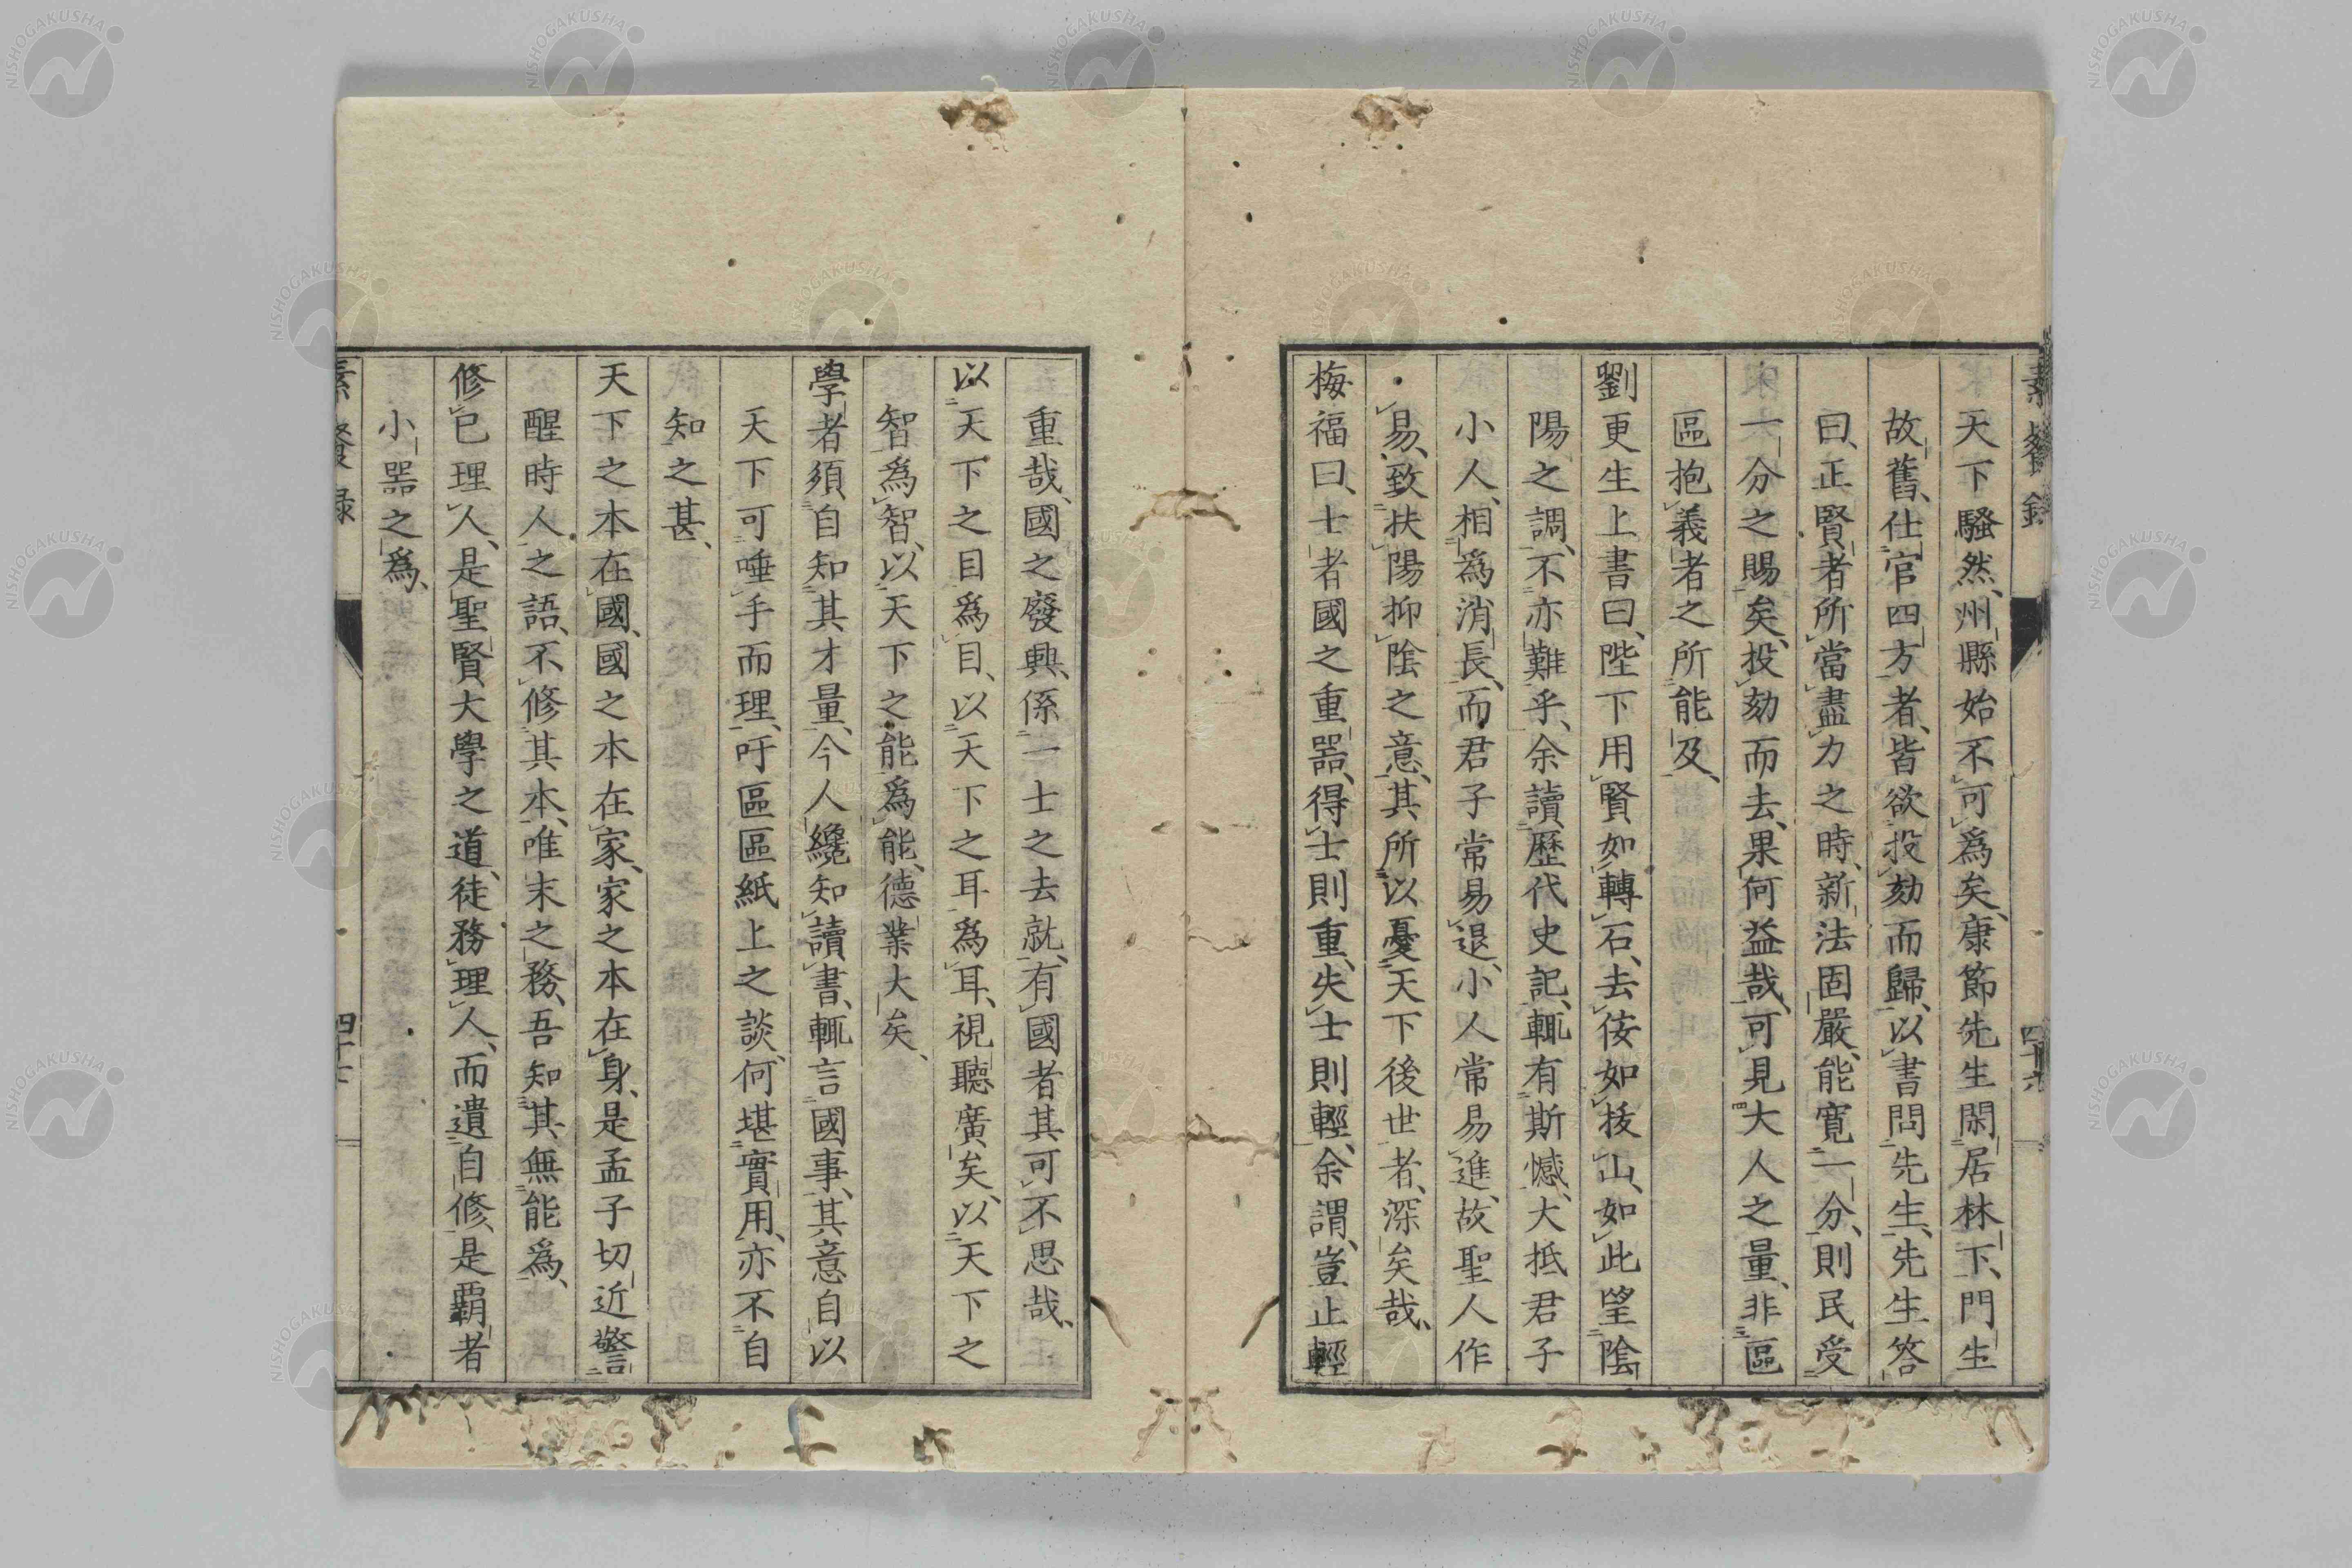 素餐錄
四十六
天下騷然、州縣始不可爲矣、康節先生閑居林下、門生
故舊、仕官四方者、皆欲投劾而歸、以書問先生、先生答
曰、正賢者所當盡力之時、新法固嚴、能寬一分、則民受
一分之賜矣、投劾而去、果何益哉、可見大人之量、非區
區抱義者之所能及、
劉更生上書曰、陛下用賢如轉石、去佞如拔山、如此望陰
陽之調、不亦難乎、余讀歷代史記、輒有斯憾、大抵君子
小人、相爲消長、而君子常易退、小人常易進、故聖人作
易、致扶陽抑陰之意、其所以憂天下後世者、深矣哉、
梅福曰、士者國之重器、得士則重、失士則輕、余謂、豈止輕
重哉、國之廢興、係一士之去就、有國者其可不思哉、
以天下之目爲目、以天下之耳爲耳、視聽廣矣、以天下之
智爲智、以天下之能爲能、德業大矣、
學者須自知其才量、今人纔知讀書、輒言國事、其意自以
天下可唾手而理、吁區區紙上之談、何堪實用、亦不自
知之甚、
天下之本在國、國之本在家、家之本在身、是孟子切近警
醒時人之語、不修其本、唯末之務、吾知其無能爲、
修己理人、是聖賢大學之道、徒務理人、而遺自修、是霸者
小器之爲、
素餐錄
四十七
NISHOGAKUSHA